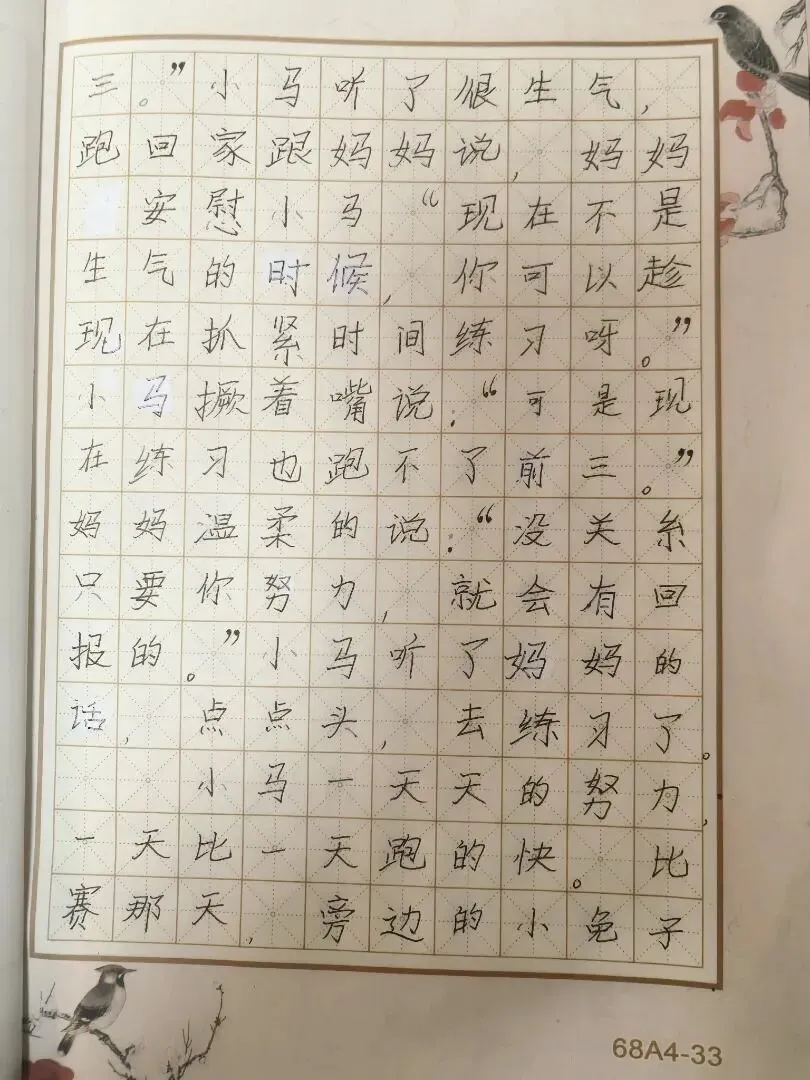 三。”小马听了很生气，
跑回家跟妈妈说，妈妈
安慰小马“现在不是
生气的时候，你可以趁
现在抓紧时间练习呀。”
小马撅着嘴说：“可是现
在练习也跑不了前三。”
妈妈温柔的说：“没关糸
只要你努力，就会有回
报的。”小马听了妈妈的
话，点点头，去练习了。
小马一天天的努力，
一天比一天跑的快。比
赛那天，旁边的小兔子
68A4-33